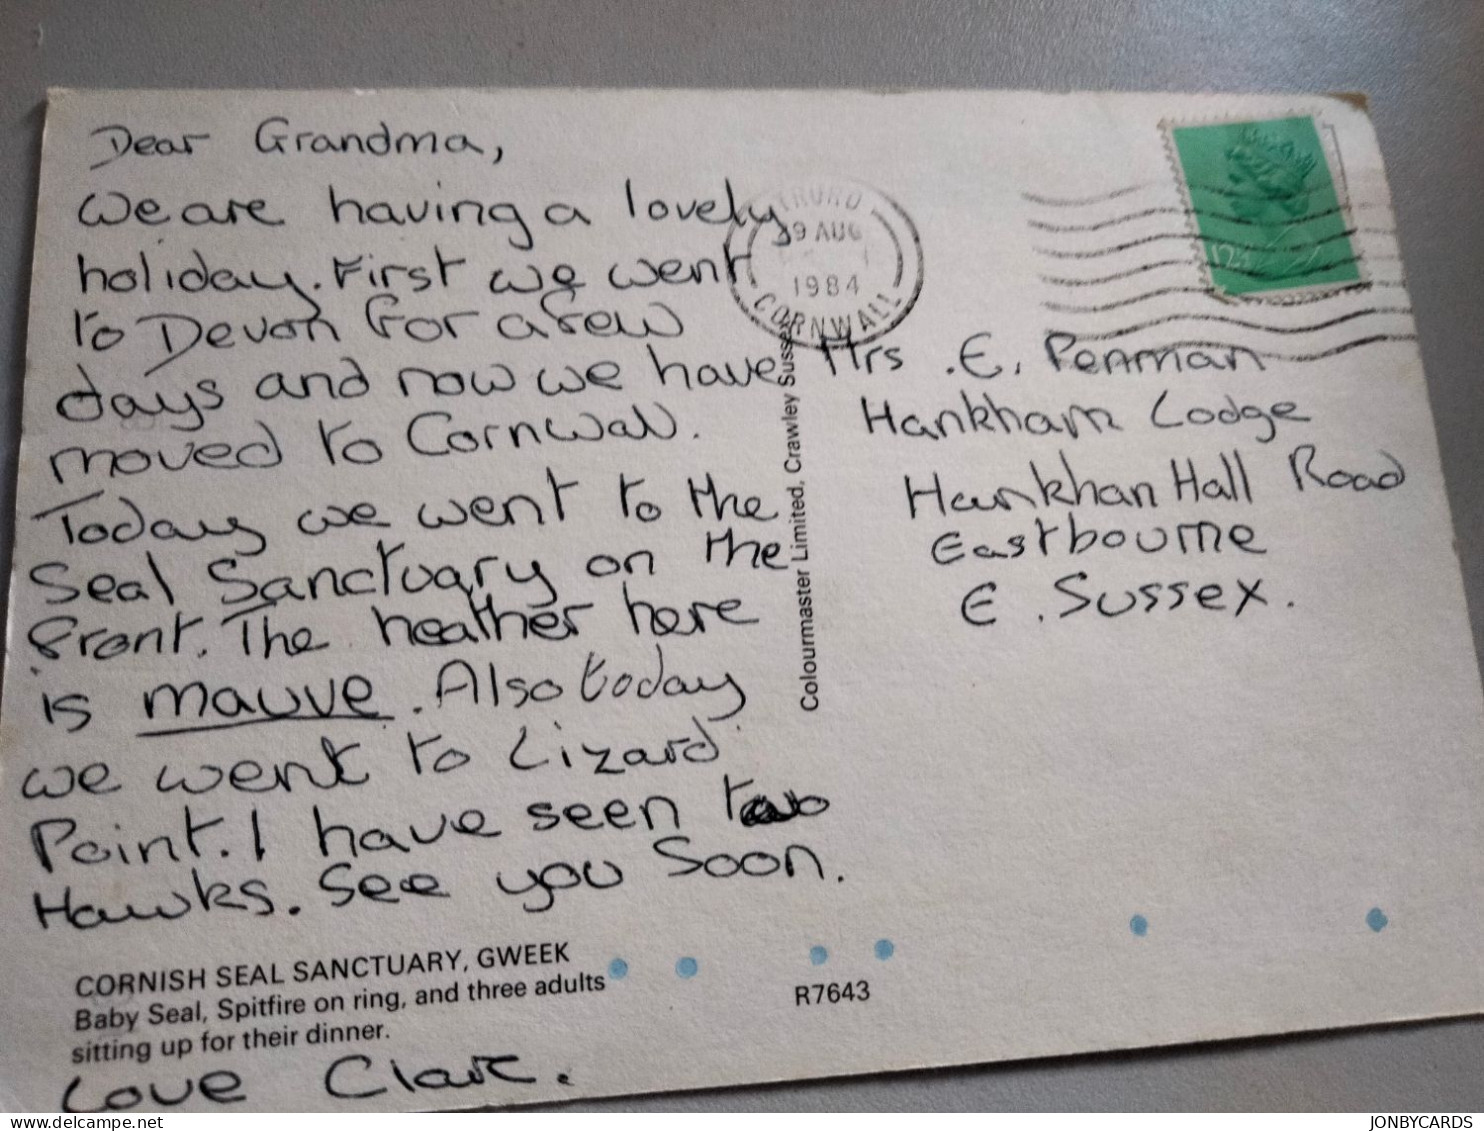 Dear Grandma,
We are having a lovely
holiday. First we went
to Devon for a few
days and now we have
moved to Cornwall.
Today we went to the
Seal Sanctuary on the
front. The heather here
is mauve. Also today
we went to Lizard
Point. I have seen two
Hawks. See you Soon.
CORNISH SEAL SANCTUARY, GWEEK
Baby Seal, Spitfire on ring, and three adults
sitting up for their dinner.
Love Clare.
Colourmaster Limited, Crawley Sussex
R7643
TRURO
AUG
1984
CORNWALL
12½
Mrs .E. Penman
Hankham Lodge
Hankhan Hall Road
Eastbourne
E. Sussex.
JONBYCARDS
delcampe.net